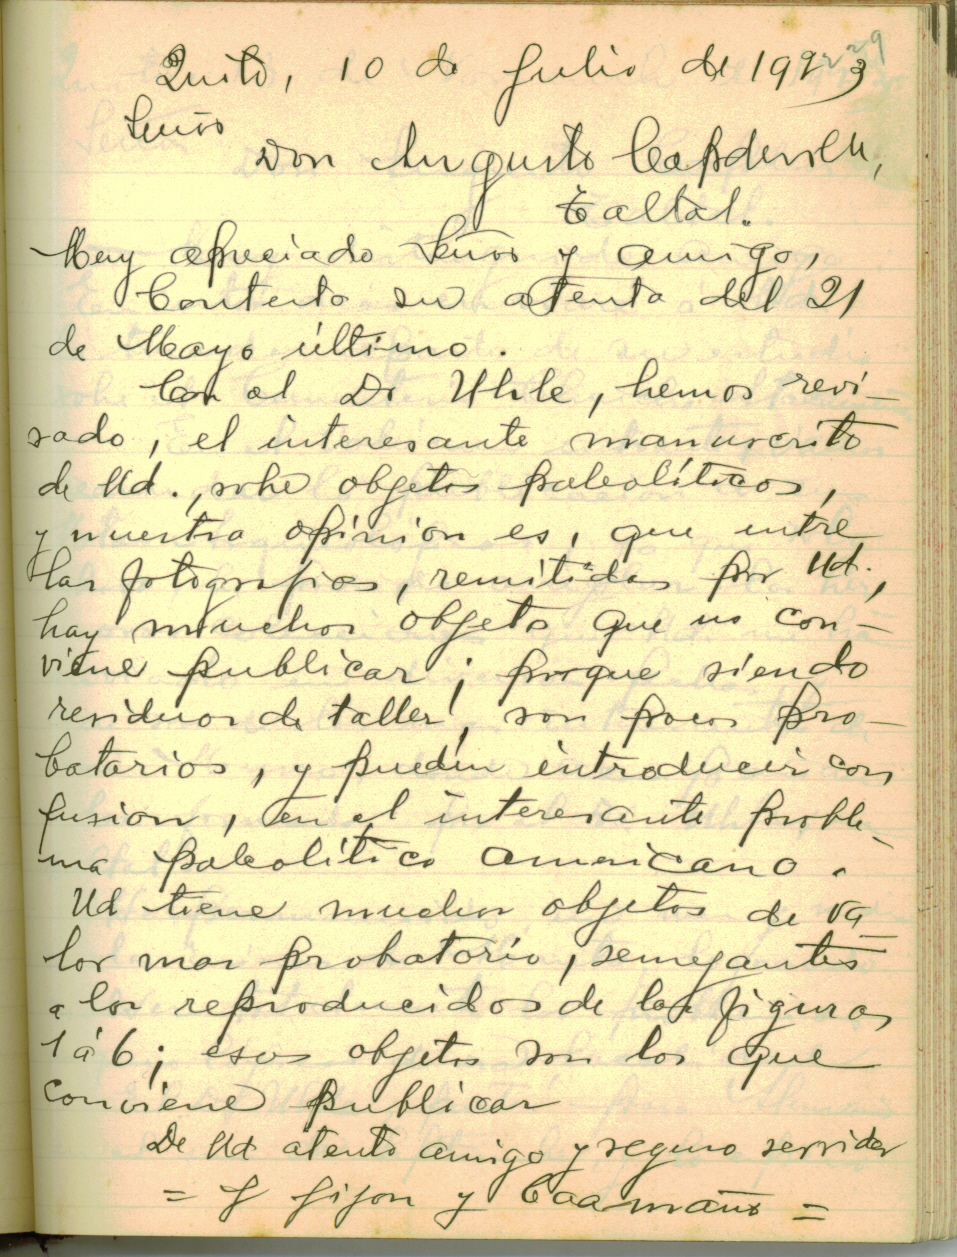 29
Quito, 10 de Julio de 1923
Señor
Don Augusto Capdeville,
Taltal.
Muy apreciado Señor y amigo,
Contesto su atenta del 21
de Mayo último.
Con el Dr Uhle, hemos revi-
sado, el interesante manuscrito
de Ud., sobre objetos paleolíticos,
y nuestra opinion es, que entre
las fotografias, remitidas por Ud.,
hay muchos objeto que no con-
viene publicar; porque siendo
residuos de taller, son pocos pro-
batorios, y pueden introducir con
fusion, en el interesante proble-
ma paleolítico americano.
Ud tiene muchos objetos de va-
lor mas probatorio, semejantes
a los reproducidos de las figuras
1 á 6; esos objetos son los que
conviene publicar
De Ud atento amigo y seguro servidor
= J Jijon y Caamaño =